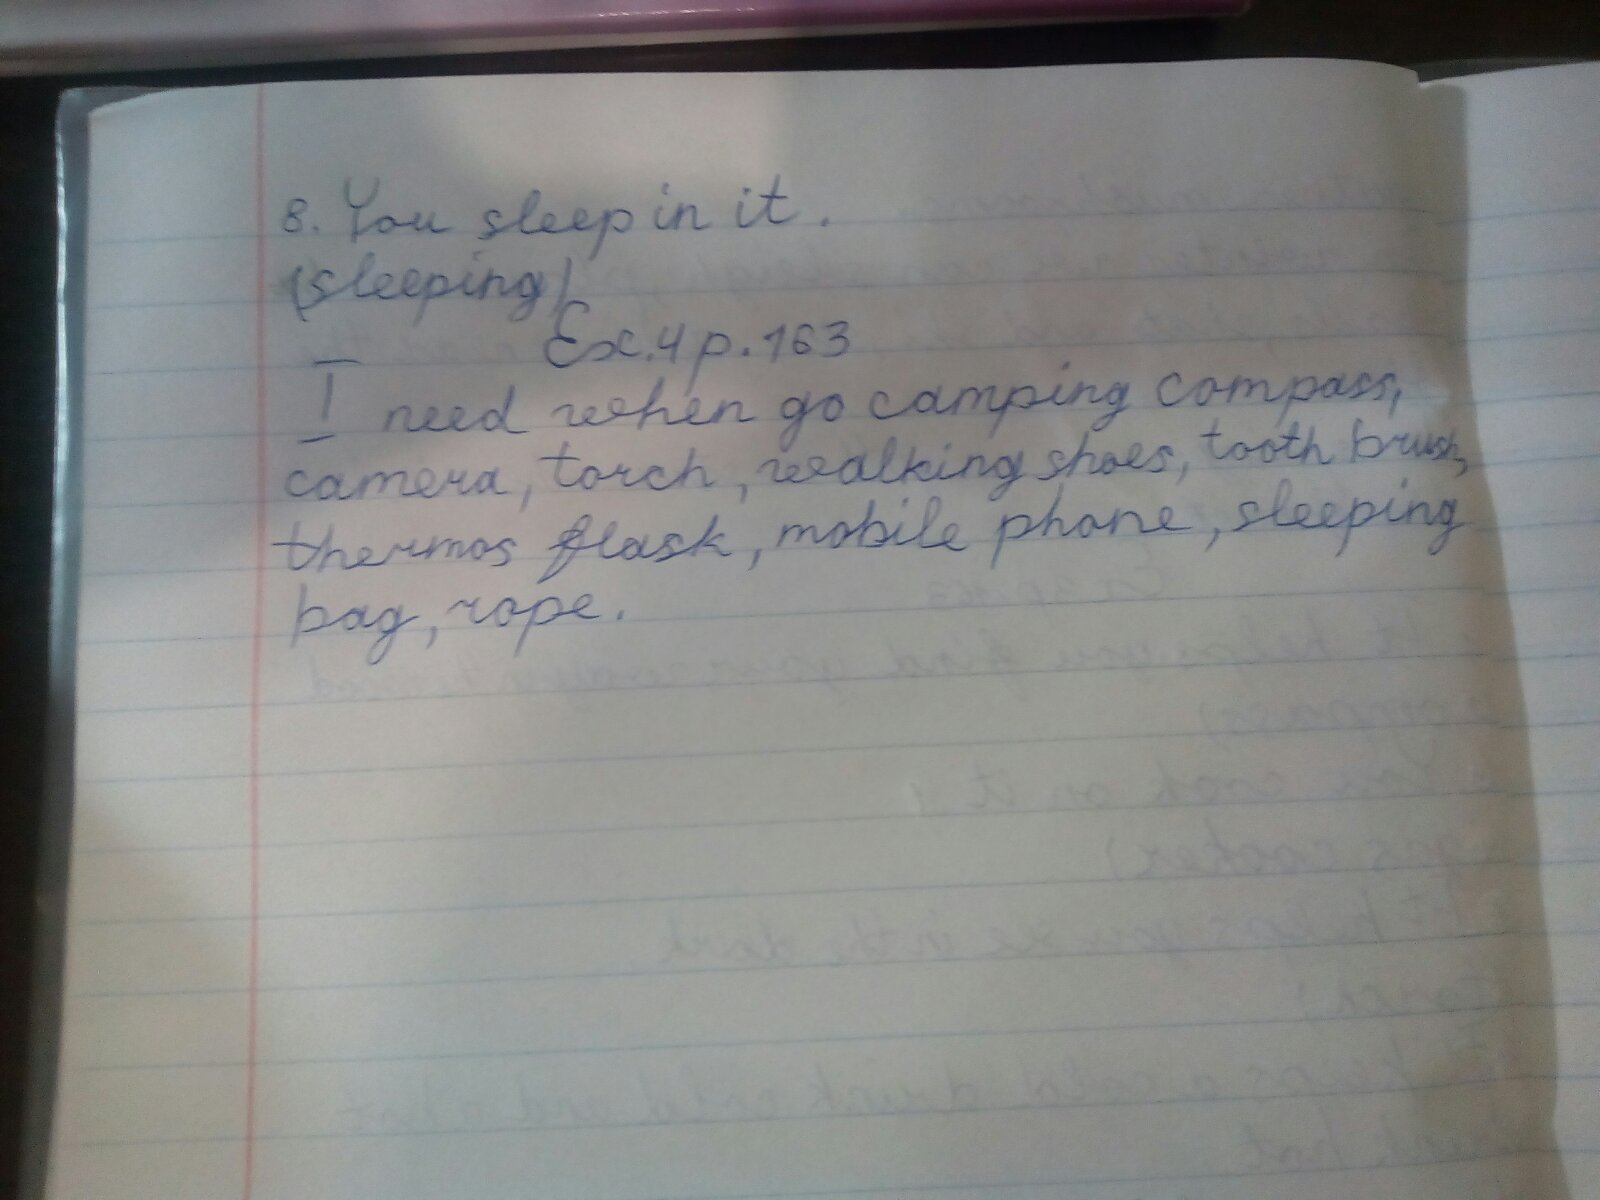 8. You sleep in it.
(sleeping)
Ex.4 p.163
I need when go camping compass,
camera, torch, walking shoes, tooth brush,
thermos flask, mobile phone, sleeping
bag, rope.